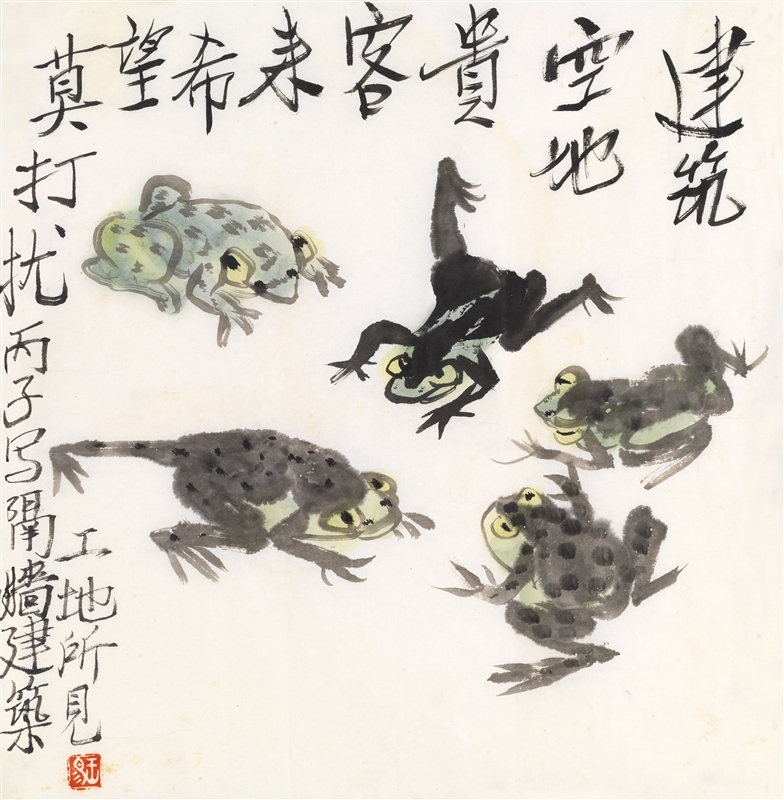 建筑
空地
貴客来希望
莫打扰丙子写隔牆建築
工地所見